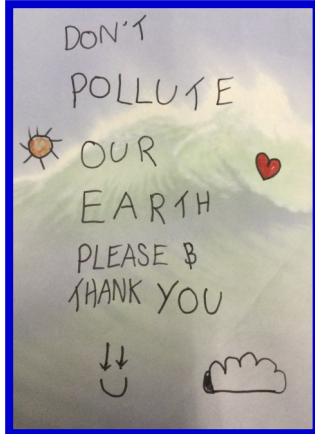 DON'T
POLLUTE
OUR
EARTH
PLEASE &
THANK YOU